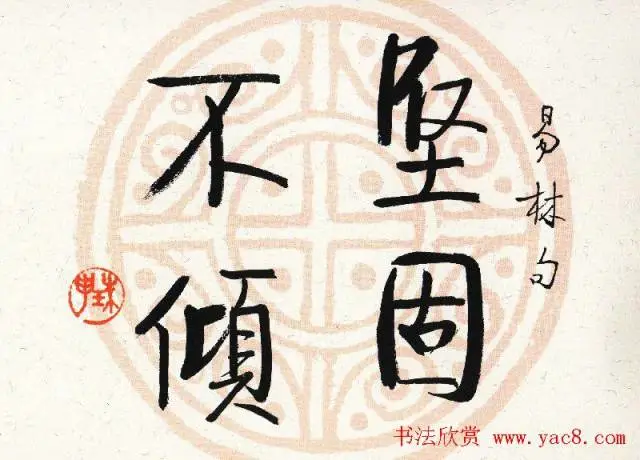 易林句
堅固
不傾
书法欣赏 www.yac8.com